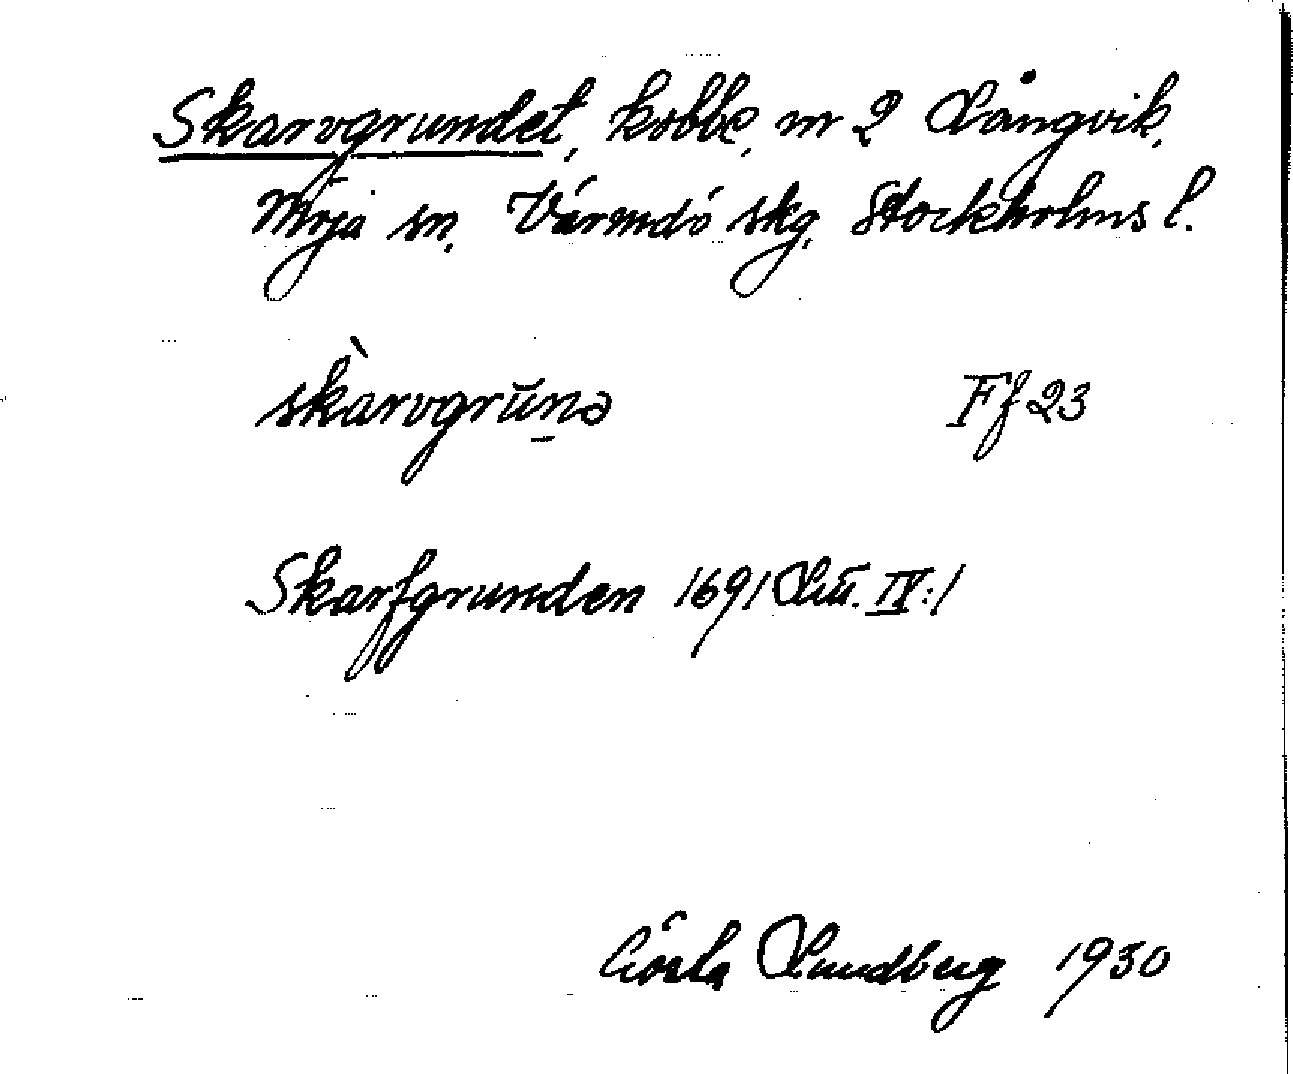 Skarvgrundet, kobbe, nr 2 Långvik,
Möja sn. Värmdö skg. Stockholms l.
skàrvgrŭn̠ə Ff 23
Skarfgrunden 1691 Litt. IV:1
Gösta Lundberg 1930